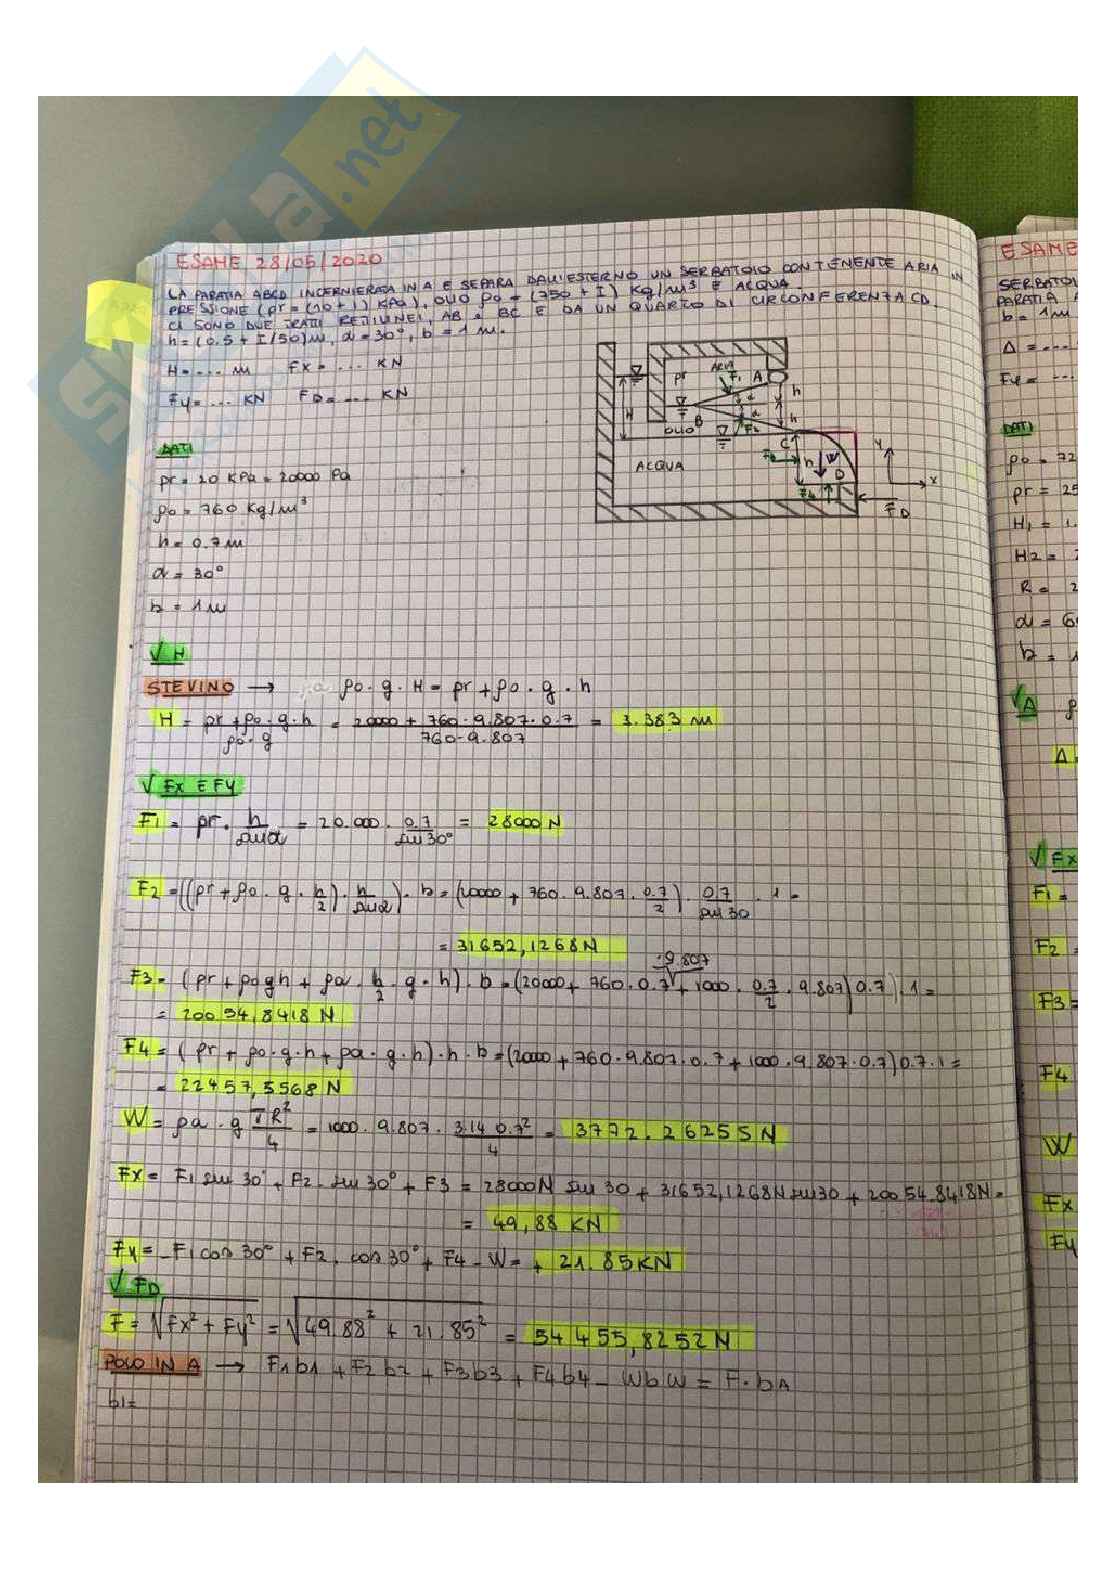 SKUOLA.net
ESAME 28/05/2020
LA PARATIA ABCD INCERNIERATA IN A E SEPARA DALL'ESTERNO UN SERBATOIO CONTENENTE ARIA IN
PRESSIONE (pr = (10 + I) KPa), OLIO ρo = (750 + I) Kg/m³ E ACQUA.
CI SONO DUE TRATTI RETTILINEI, AB e BC E DA UN QUARTO DI CIRCONFERENZA CD.
h = (0.5 + I/50) m, α = 30°, b = 1 m.
H = .... m Fx = .... KN
Fy = ... KN FD = .... KN
ARIA
pr
F1
A
h
α
α
H
B
OLIO
F2
h
C
ACQUA
F3
h
W
D
F4
y
x
FD
DATI
pr = 20 KPa = 20000 Pa
ρo = 760 Kg/m³
h = 0.7 m
α = 30°
b = 1 m
√ H
STEVINO → ρo · g · H = pr + ρo · g · h
H = pr + ρo · g · h / ρo · g = 20000 + 760 · 9.807 · 0.7 / 760 · 9.807 = 3.383 m
√ Fx E Fy
F1 = pr · h / sin α = 20.000 · 0.7 / sin 30° = 28000 N
F2 = ((pr + ρo · g · h/2) · h / sin α) · b = (20000 + 760 · 9.807 · 0.7/2) · 0.7 / sin 30 · 1 =
= 31652,1268 N
F3 = (pr + ρo g h + ρa · h/2 · g · h) · b = (20000 + 760 · 0.7 · 9.807 + 1000 · 0.7/2 · 9.807) 0.7) · 1 =
= 20054,8418 N
F4 = (pr + ρo · g · h + ρa · g · h) · h · b = (20000 + 760 · 9.807 · 0.7 + 1000 · 9.807 · 0.7) 0.7 · 1 =
= 22457,5568 N
W = ρa · g πR²/4 = 1000 · 9.807 · 3.14 0.7²/4 = 3772.26255 N
Fx = F1 sin 30° + F2 · sin 30° + F3 = 28000 N sin 30 + 31652,1268 N sin 30 + 20054.8418 N =
= 49,88 KN
Fy = - F1 cos 30° + F2 · cos 30° + F4 - W = + 21.85 KN
√ FD
F = √Fx² + Fy² = √49.88² + 21.85² = 54455,8252 N
POLO IN A → F1b1 + F2b2 + F3b3 + F4b4 - WbW = F · bA
b1 =
ESAME
SERBATOI
PARATIA A
b = 1m
Δ = ....
Fy = ...
DATI
ρo = 72
pr = 25
H1 = 1.
H2 =
R = 2
α = 6
b = 1
√ A
Δ
√ Fx
F1 =
F2 =
F3 =
F4
W
Fx
Fy